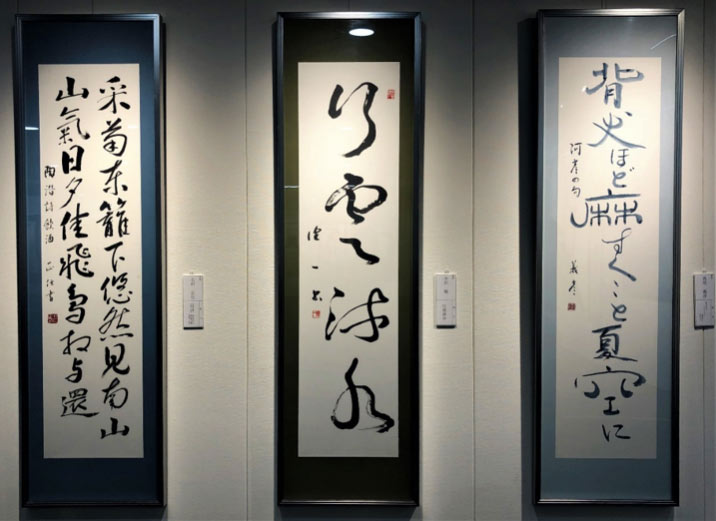 采菊東籬下悠然見南山
山氣日夕佳飛鳥相与還
陶潜詩飲酒
行雲流水
背丈ほど麻すく〻と夏空に
河彦の句
義彦